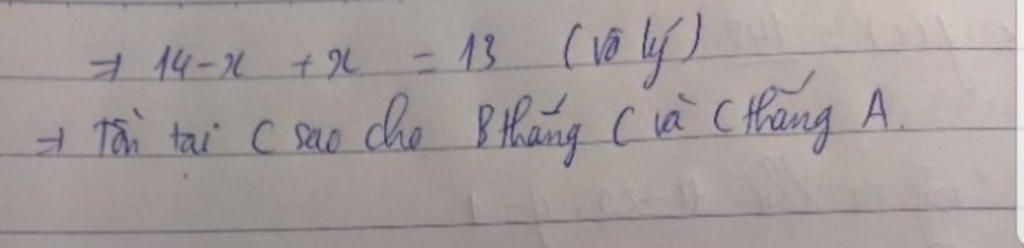 ⇒ 14-x + x = 13 (vô lý)
⇒ Tồn tại C sao cho B thắng C và C thắng A.